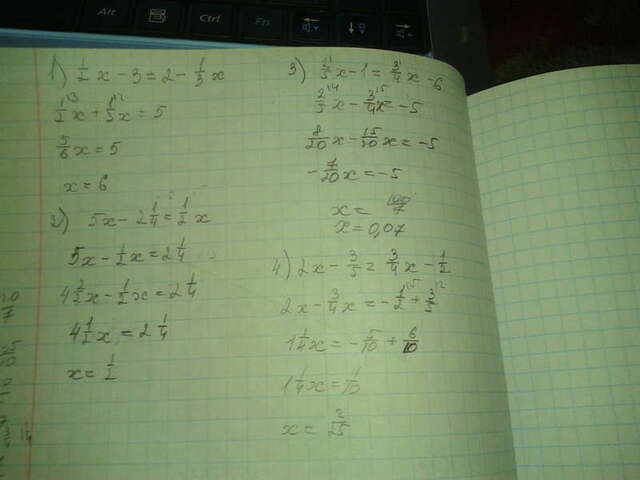 Alt
Ctrl
Fn
1) 1/2 x - 3 = 2 - 1/3 x
1/2 \3 x + 1/3 \2 x = 5
5/6 x = 5
x = 6
2) 5x - 2 1/4 = 1/2 x
5x - 1/2 x = 2 1/4
4 2/2 x - 1/2 x = 2 1/4
4 1/2 x = 2 1/4
x = 1/2
3) 2/5 x - 1 = 3/4 x - 6
2/5 \4 x - 3/4 \5 x = -5
8/20 x - 15/20 x = -5
- 7/20 x = -5
x = 100/7
x = 0,07
4) 2x - 3/5 = 3/4 x - 1/2
2x - 3/4 x = - 1/2 \5 + 3/5 \2
1 1/4 x = - 5/10 + 6/10
1 1/4 x = 1/10
x = 2/25